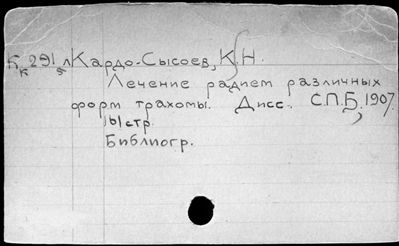 К 291 л Кардо-Сысоев, К.Н.
Лечение радием различных
форм трахомы. Дисс. С.П.Б, 1907.
161 стр.
Библиогр.